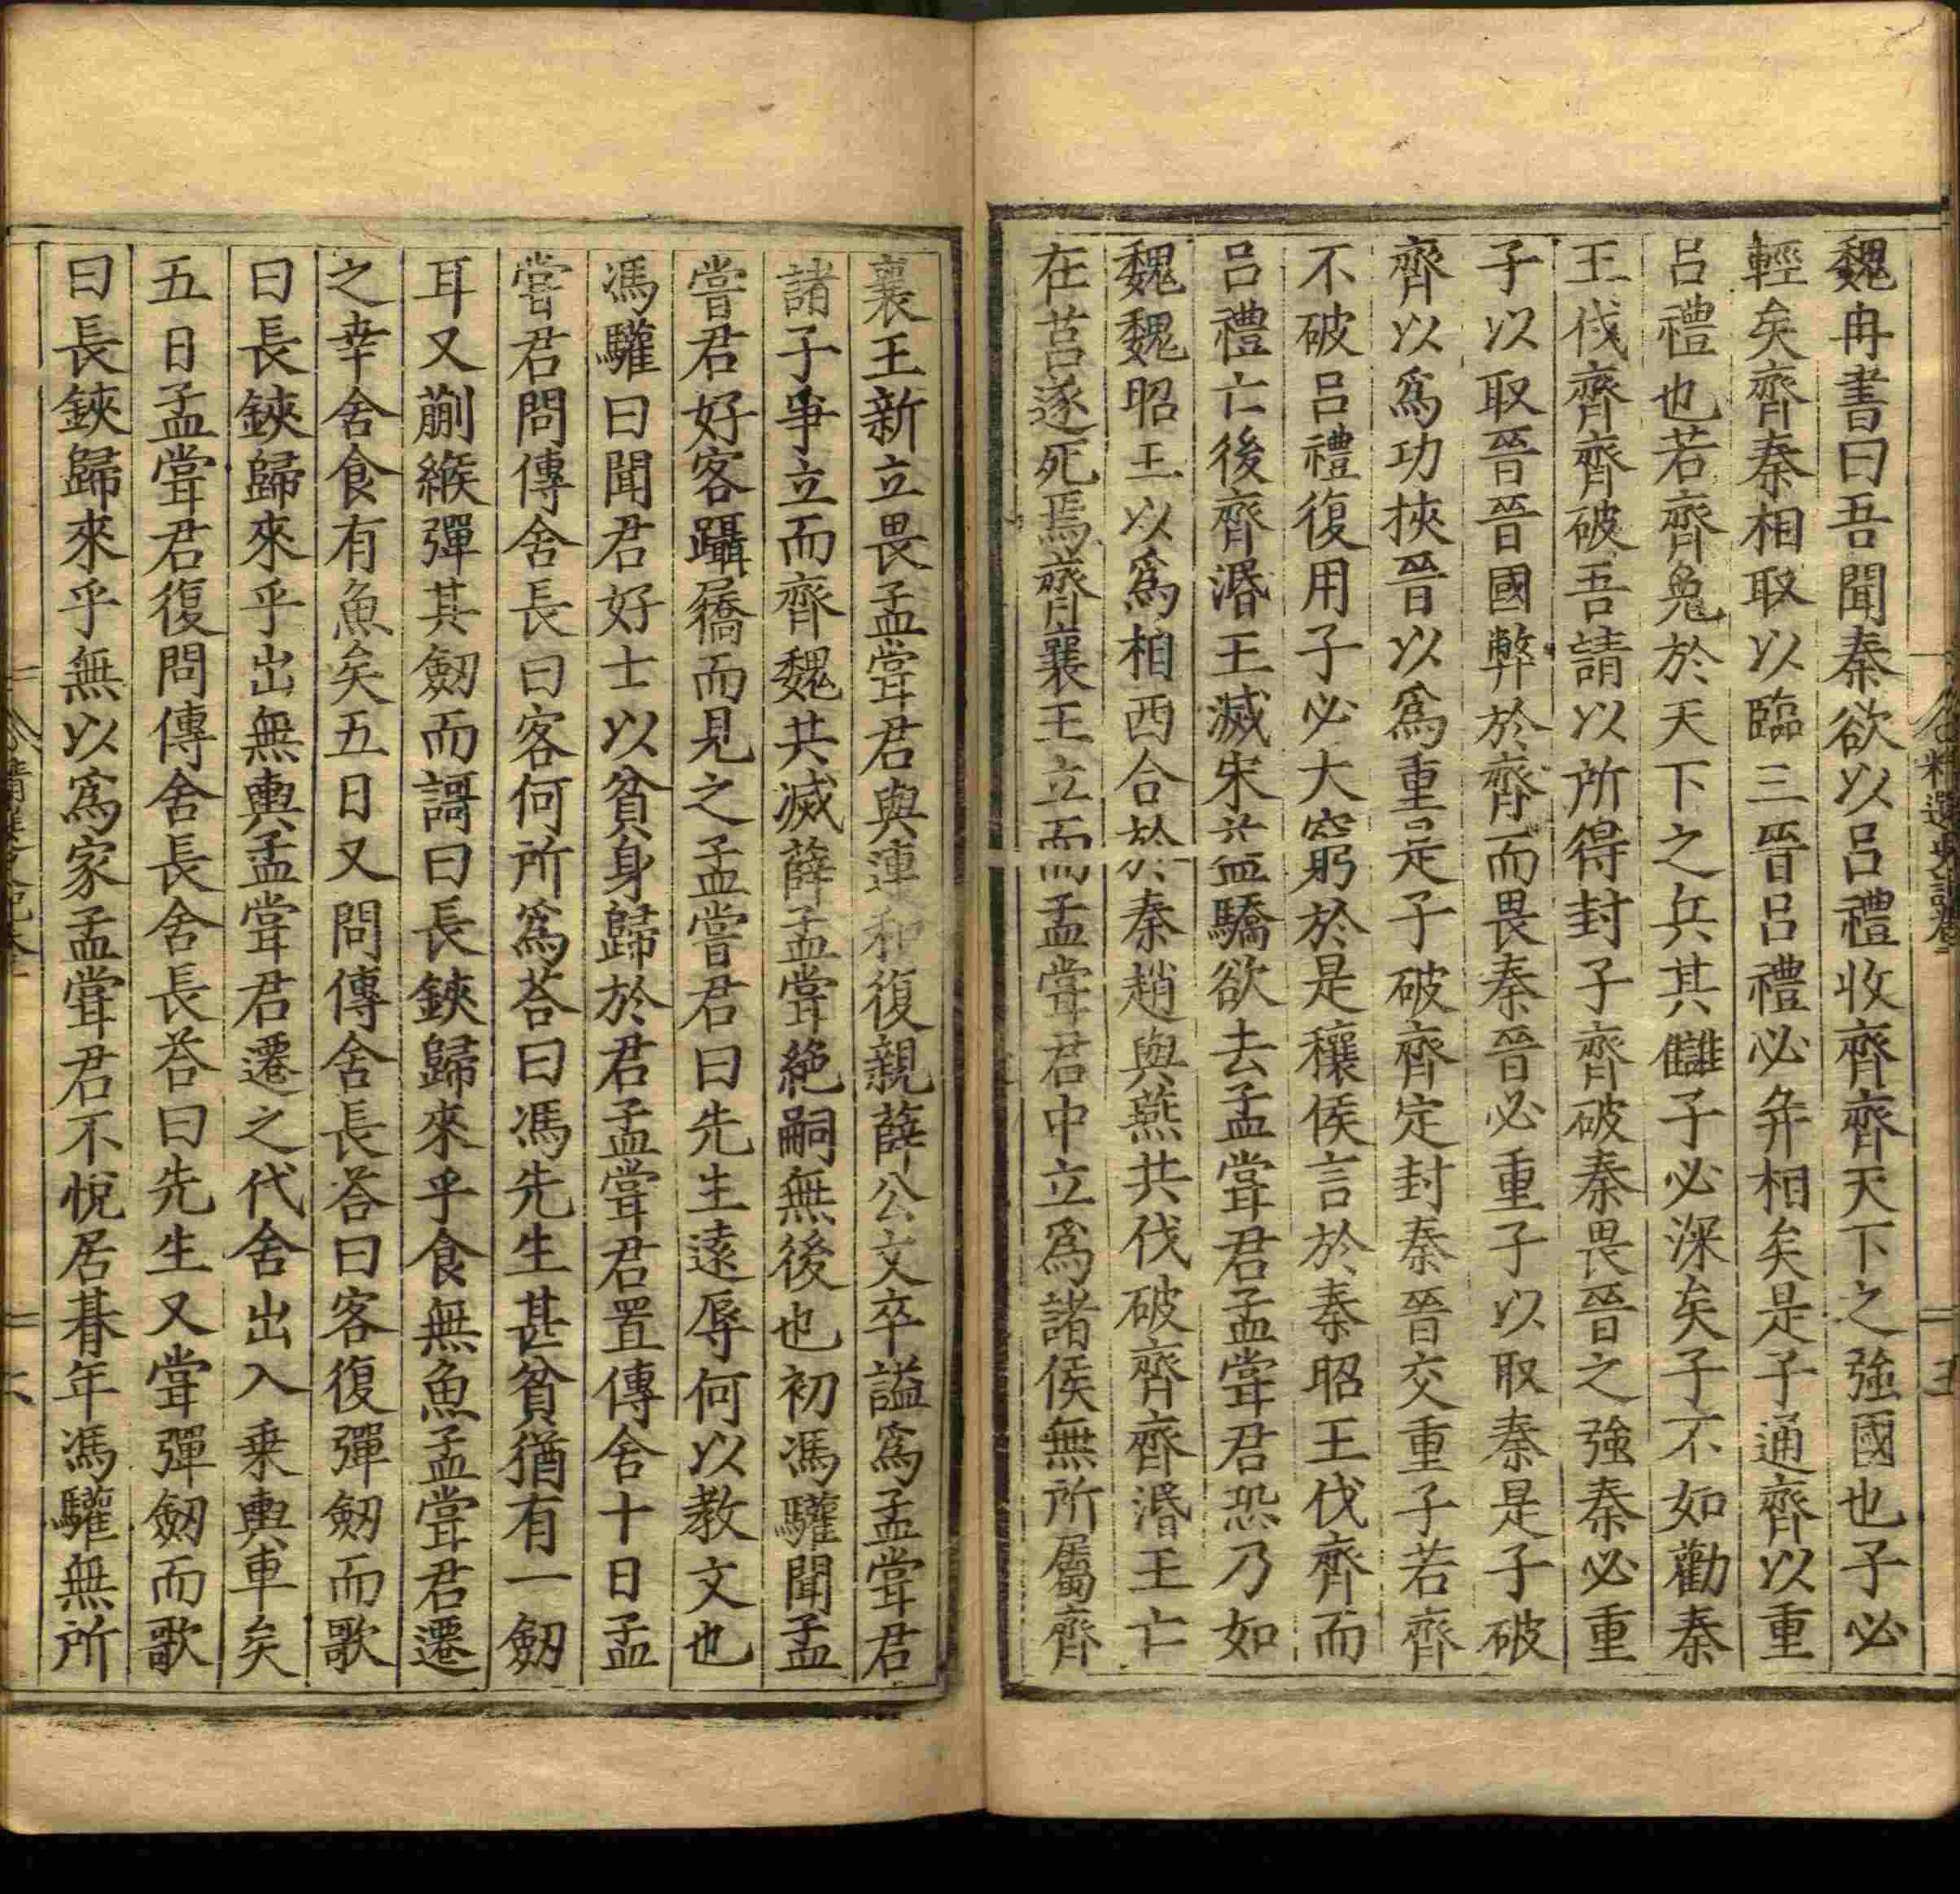 魏冉書曰吾聞秦欲以呂禮收齊齊天下之強國也子必
輕矣齊秦相取以臨三晉呂禮必并相矣是子通齊以重
呂禮也若齊免於天下之兵其讎子必深矣子不如勸秦
王伐齊齊破吾請以所得封子齊破秦畏晉之強秦必重
子以取晉晉國弊於齊而畏秦晉必重子以取秦是子破
齊以爲功挾晉以爲重是子破齊定封秦晉交重子若齊
不破呂禮復用子必大窮於是穰侯言於秦昭王伐齊而
呂禮亡後齊湣王滅宋益驕欲去孟嘗君孟嘗君恐乃如
魏魏昭王以爲相西合於秦趙與燕共伐破齊齊湣王亡
在莒遂死焉齊襄王立而孟嘗君中立爲諸侯無所屬齊
襄王新立畏孟嘗君與連和復親薛公文卒謚爲孟嘗君
諸子爭立而齊魏共滅薛孟嘗絶嗣無後也初馮驩聞孟
嘗君好客躡屩而見之孟嘗君曰先生遠辱何以教文也
馮驩曰聞君好士以貧身歸於君孟嘗君置傳舍十日孟
嘗君問傳舍長曰客何所爲荅曰馮先生甚貧猶有一劒
耳又蒯緱彈其劒而謌曰長鋏歸來乎食無魚孟嘗君遷
之幸舍食有魚矣五日又問傳舍長荅曰客復彈劒而歌
曰長鋏歸來乎出無輿孟嘗君遷之代舍出入乗輿車矣
五日孟嘗君復問傳舍長舍長荅曰先生又嘗彈劒而歌
曰長鋏歸來乎無以爲家孟嘗君不悅居朞年馮驩無所